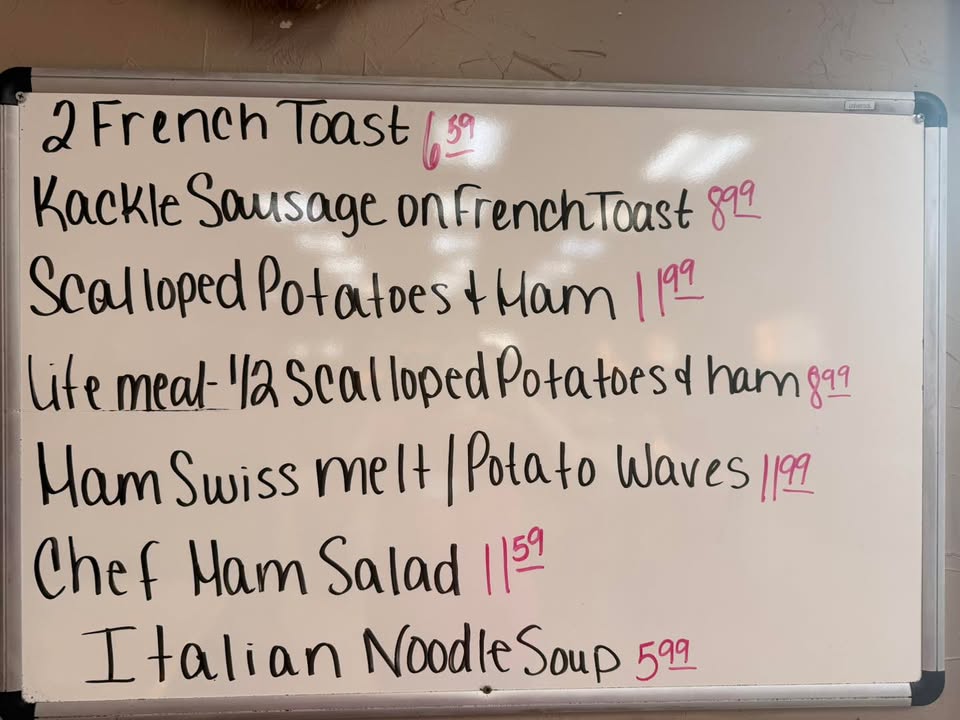 2 French Toast 6 59
Kackle Sausage on French Toast 8 99
Scalloped Potatoes & Ham 11 99
Lite meal - 1/2 Scalloped Potatoes & ham 8 99
Ham Swiss melt / Potato Waves 11 99
Chef Ham Salad 11 59
Italian Noodle Soup 5 99